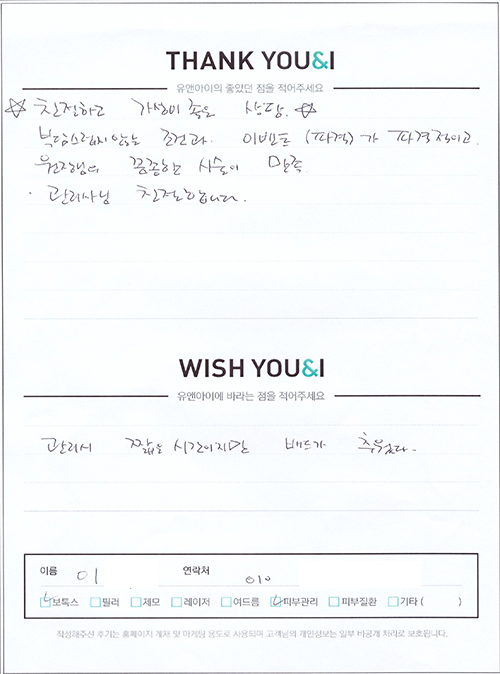 THANK YOU&I
유앤아이의 좋았던 점을 적어주세요
☆ 친절하고 가성비 좋은 상담. ☆
부담스럽지않은 조건과. 이벤트 (파격)가 파격적이고.
원장님의 꼼꼼한 시술이 만족
· 관리사님 친절하십니다.
WISH YOU&I
유앤아이에 바라는 점을 적어주세요
관리시 짧은 시간이지만 베드가 추웠다.
이름 이 연락처 010
보톡스 필러 제모 레이저 여드름 피부관리 피부질환 기타 ( )
작성해주신 후기는 홈페이지 게재 및 마케팅 용도로 사용되며 고객님의 개인정보는 일부 비공개 처리로 보호됩니다.